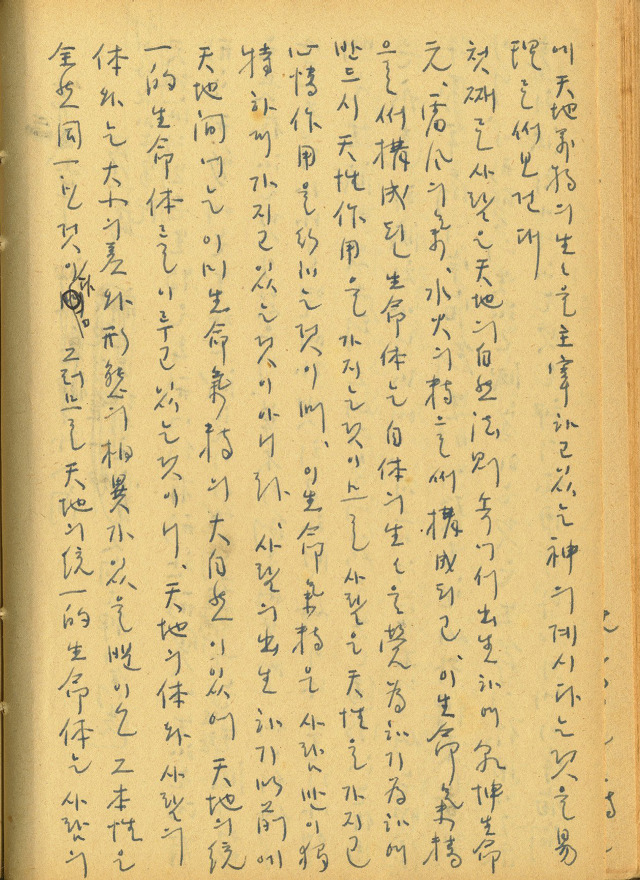 에 天地萬物의 生々을 主宰하고 있는 神의 계시다는 것을 易
理로써 보건대
첫째로 사람은 天地의 自然法則 속에서 出生하며 乾坤生命
元、雷風의 氣、水火의 精으로써 構成되고、이 生命氣精
으로써 構成된 生命体는 自体의 生々을 営為하기 爲하여
반드시 天性作用을 가지는 것이므로 사람은 天性을 가지고
心情作用을 하는 것이며、이 生命氣精은 사람만이 獨
特하게 가지고 있는 것이 아니라、사람의 出生하기 以前에
天地間에는 이미 生命氣精의 大自然이 있어 天地의 統
一的 生命体를 이루고 있는 것이니、天地의 体와 사람의
体와는 大小의 差와 形態의 相異가 있을 뿐이고 그 本性은
全然 同一한 것이다 그러므로 天地의 統一的 生命体는 사람의